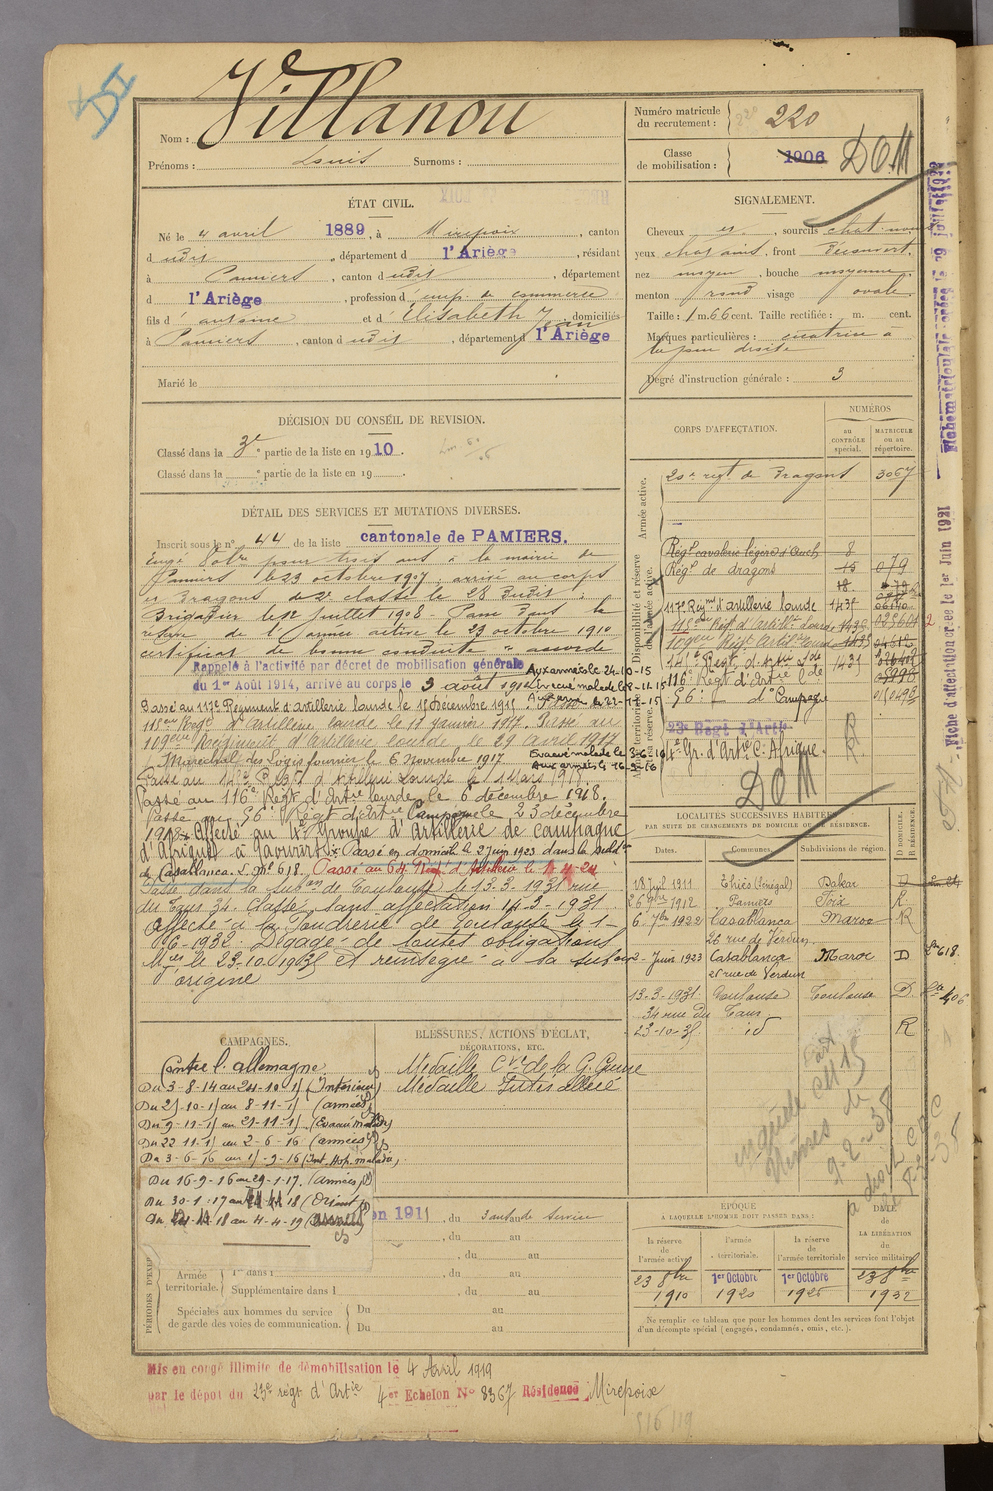 Villanou
Nom :
Prénoms : Louis Surnoms :
Numéro matricule
du recrutement : 220
Classe
de mobilisation : 1906 DOM
ÉTAT CIVIL.
Né le 4 avril 1889, à Mirepoix, canton
d udit, département d l'Ariège, résidant
à Pamiers, canton d udit, département
d l'Ariège, profession d emp. de commerce
fils d' antoine et d' Elisabeth Jean domiciliés
à Pamiers, canton d udit, département d l'Ariège
Marié le
SIGNALEMENT.
Cheveux et, sourcils chat
yeux chatains, front découvert,
nez moyen, bouche moyenne
menton rond visage ovale
Taille : 1 m. 66 cent. Taille rectifiée : m. cent.
Marques particulières : cicatrice à
droite
Degré d'instruction générale : 3
DÉCISION DU CONSEIL DE REVISION.
Classé dans la 3e partie de la liste en 1910.
Classé dans la ° partie de la liste en 19
CORPS D'AFFECTATION.
NUMÉROS
au
CONTRÔLE
spécial.
MATRICULE
ou au
répertoire.
Armée active.
20e regt de Dragons 3067
Disponibilité et réserve
de l'armée active.
8
Régt de dragons 15 079
18
117e Regnt d'artillerie lourde 143f
141e Regt. d. Art 1431
116e Regt d'Artie lde
56e do Campagne
23e Régt d'Artie
4e Gr. d'Artie C. Afrique.
DOM
DÉTAIL DES SERVICES ET MUTATIONS DIVERSES.
Inscrit sous le n° 44 de la liste cantonale de PAMIERS.
Engé Volre pour trois ans à la mairie de
Pamiers le 23 octobre 1907, arrivé au corps
et Dragons de 2e classe le 28 dudit.
Brigadier le Juillet 1908 Passé dans la
réserve de l'armée active le 23 octobre 1910
certificat de bonne conduite " accordé
Rappelé à l'activité par décret de mobilisation générale
du 1er Août 1914, arrivé au corps le 3 août 1914
Aux armées le 24-10-15
Evacué malade le 8-11-15
Passé au 117e Régiment d'Artillerie lourde le 1 décembre 1915
118eme Regt d'Artillerie lourde le 11 Janvier 1917. Passé au
119eme Régiment d'Artillerie lourde le 29 avril 1917
Maréchal des Logis fourrier le 6 Novembre 1917
Evacué malade le 3-6-16
Aux armées le 16-9-16
Passé au 141e Regt d'Artillerie Lourde le 1 Mars 1918
Passé au 116e Régt d'Artie lourde le 6 décembre 1918.
Passé au 56e Régt d'Artie Campagne le 23 décembre
1918. Affecté au 4e Groupe d'Artillerie de campagne
d'Afrique à Taourirt. Passé en domicile le 2 juin 1923 dans la subd.
de Casablanca. L. M° 618. Passé au 64 Régt d'Artillerie le 1 4 24
Passé dans la subon de Toulouse le 13.3.1931 rue
du Taur 34. Classé sans affectation 14-3-1931.
Affecté à la Poudrerie de Toulouse le 1-
6-1932. Dégagé de toutes obligations
Mres le 23.10.1938 et réintégré à la subon
origine
LOCALITÉS SUCCESSIVES HABITÉES
PAR SUITE DE CHANGEMENTS DE DOMICILE OU DE RÉSIDENCE.
Dates. Communes. Subdivisions de région. D DOMICILE. R RÉSIDENCE.
18 Juil 1911 Thiès (Sénégal) Dakar D
26 9bre 1912 Pamiers Foix R
6 7bre 1922 Casablanca Maroc R
26 rue de Verdun
2 - Juin 1923 Casablanca Maroc D 618
26 rue de Verdun
13-3-1931 Toulouse Toulouse D 406
34 rue du Taur
23-10-38 id R
CAMPAGNES.
Contre l'allemagne
Du 3-8-14 au 24-10-15 (Intérieur)
Du 25-10-15 au 8-11-15 (armées)
Du 9-11-15 au 21-11-15 (Evacué malade)
Du 22-11-15 au 2-6-16 (armées)
Du 3-6-16 au 15-9-16 (Int. Hop. malade)
Du 16-9-16 au 29-1-17. (Armées)
Du 30-1-17 au 18 (Orient)
Du 18 au 4-4-19
BLESSURES, ACTIONS D'ÉCLAT,
DÉCORATIONS, ETC.
Médaille Cve de la G. Guerre
Médaille Interalliée
en 1911, du 3 ans de service
, du au
, du au
Armée
territoriale.
1re dans l , du au
Supplémentaire dans l , du au
Spéciales aux hommes du service
de garde des voies de communication. Du au
Du au
ÉPOQUE
À LAQUELLE L'HOMME DOIT PASSER DANS :
la réserve
de
l'armée active.
l'armée
territoriale.
la réserve
de
l'armée territoriale
DATE
de
LA LIBÉRATION
du
service militaire.
23 8bre
1910
1er Octobre
1920
1er Octobre
1926
23 8bre
1932
Ne remplir ce tableau que pour les hommes dont les services font l'objet
d'un décompte spécial (engagés, condamnés, omis, etc.).
Mis en congé illimité de démobilisation le 4 Avril 1919
par le dépôt du 23e régt d'Artie 4er Echelon N° 8367 Résidence Mirepoix
Fiche d'affectation créée le 1er Juin 1921